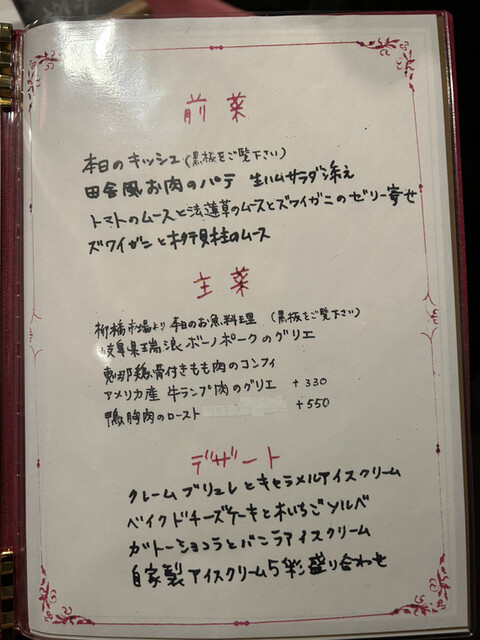 前菜
本日のキッシュ(黒板をご覧下さい)
田舎風お肉のパテ 生ハムサラダ添え
トマトのムースと法蓮草のムースとズワイガニのゼリー寄せ
ズワイガニと帆立貝柱のムース
主菜
柳橋市場より 本日のお魚料理 (黒板をご覧下さい)
岐阜県瑞浪ボーノポークのグリエ
恵那鶏骨付きもも肉のコンフィ
アメリカ産 牛ランプ肉のグリエ +330
鴨胸肉のロースト +550
デザート
クレームブリュレとキャラメルアイスクリーム
ベイクドチーズケーキと木いちごソルベ
ガトーショコラとバニラアイスクリーム
自家製アイスクリーム5彩盛り合わせ